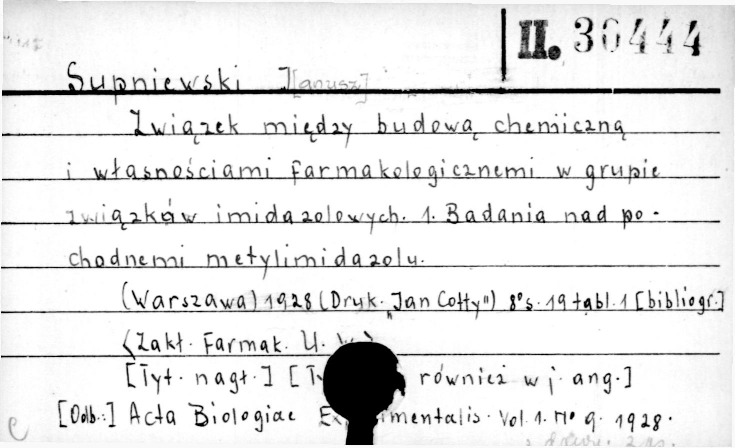 II. 36444
Supniewski J[anusz]
Związek między budową chemiczną
i własnościami farmakologicznemi w grupie
związków imidazolowych. 1. Badania nad po-
chodnemi metylimidazolu.
(Warszawa) 1928 (Druk. "Jan Cotty") 8° s. 19 tabl. 1 [bibliogr.]
(Zakł. Farmak. U. W.)
[Tyt. nagł.] [ również w j. ang.]
[Odb.:] Acta Biologiae Experimentalis. Vol. 1. No 9. 1928.